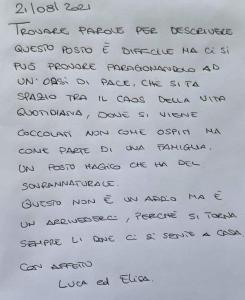 21/08/2021
TROVARE PAROLE PER DESCRIVERE
QUESTO POSTO È DIFFICILE MA CI SI
PUÒ PROVARE PARAGONANDOLO AD
UN'OASI DI PACE, CHE SI FA
SPAZIO TRA IL CAOS DELLA VITA
QUOTIDIANA, DOVE SI VIENE
COCCOLATI NON COME OSPITI MA
COME PARTE DI UNA FAMIGLIA.
UN POSTO MAGICO CHE HA DEL
SOVRANNATURALE.
QUESTO NON È UN ADDIO MA È
UN ARRIVEDERCI, PERCHÉ SI TORNA
SEMPRE LÌ DOVE CI SI SENTE A CASA.
CON AFFETTO
LUCA ED ELISA.